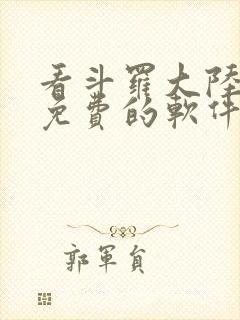 看斗羅大陸
免費的軟件
郭軍負